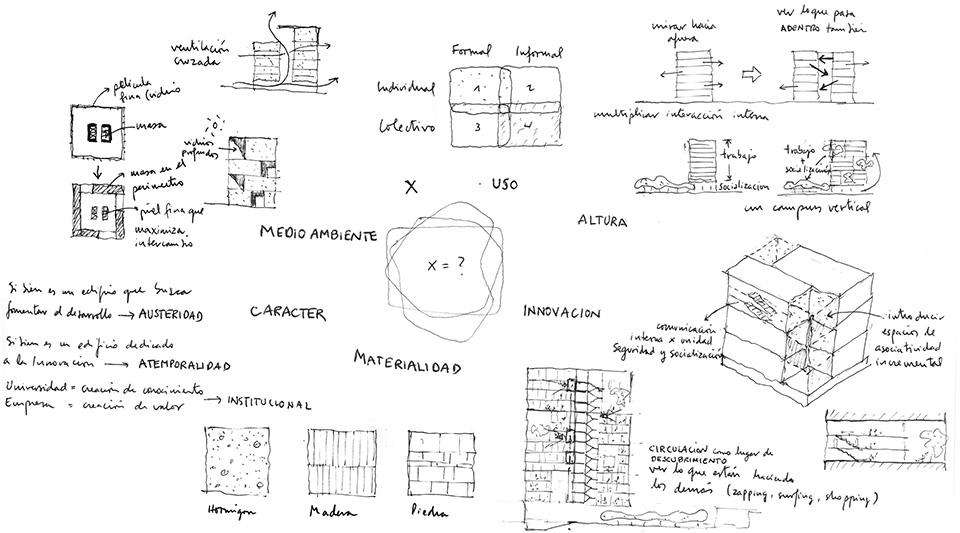 ventilación
cruzada
película
fina (vidrio
masa
masa en el
perímetro
piel fina que
maximiza
intercambio
vidrios
profundos
MEDIO AMBIENTE
Formal Informal
Individual
Colectivo
1 2
3 4
X . USO
X = ?
mirar hacia
afuera
ver lo que pasa
ADENTRO también
multiplicar interacción interna
trabajo
socialización
trabajo
+
socialización
un campus vertical
ALTURA
Si bien es un edificio que busca
fomentar el desarrollo → AUSTERIDAD
Si bien es un edificio dedicado
a la Innovación → ATEMPORALIDAD
Universidad = creación de conocimiento
Empresa = creación de valor
→ INSTITUCIONAL
CARACTER
INNOVACION
MATERIALIDAD
comunicación
interna x unidad
Seguridad y socialización
introducir
espacios de
asociatividad
incremental
Hormigon
Madera
Piedra
CIRCULACION como lugar de
DESCUBRIMIENTO
ver lo que están haciendo
los demás (zapping, surfing, shopping)